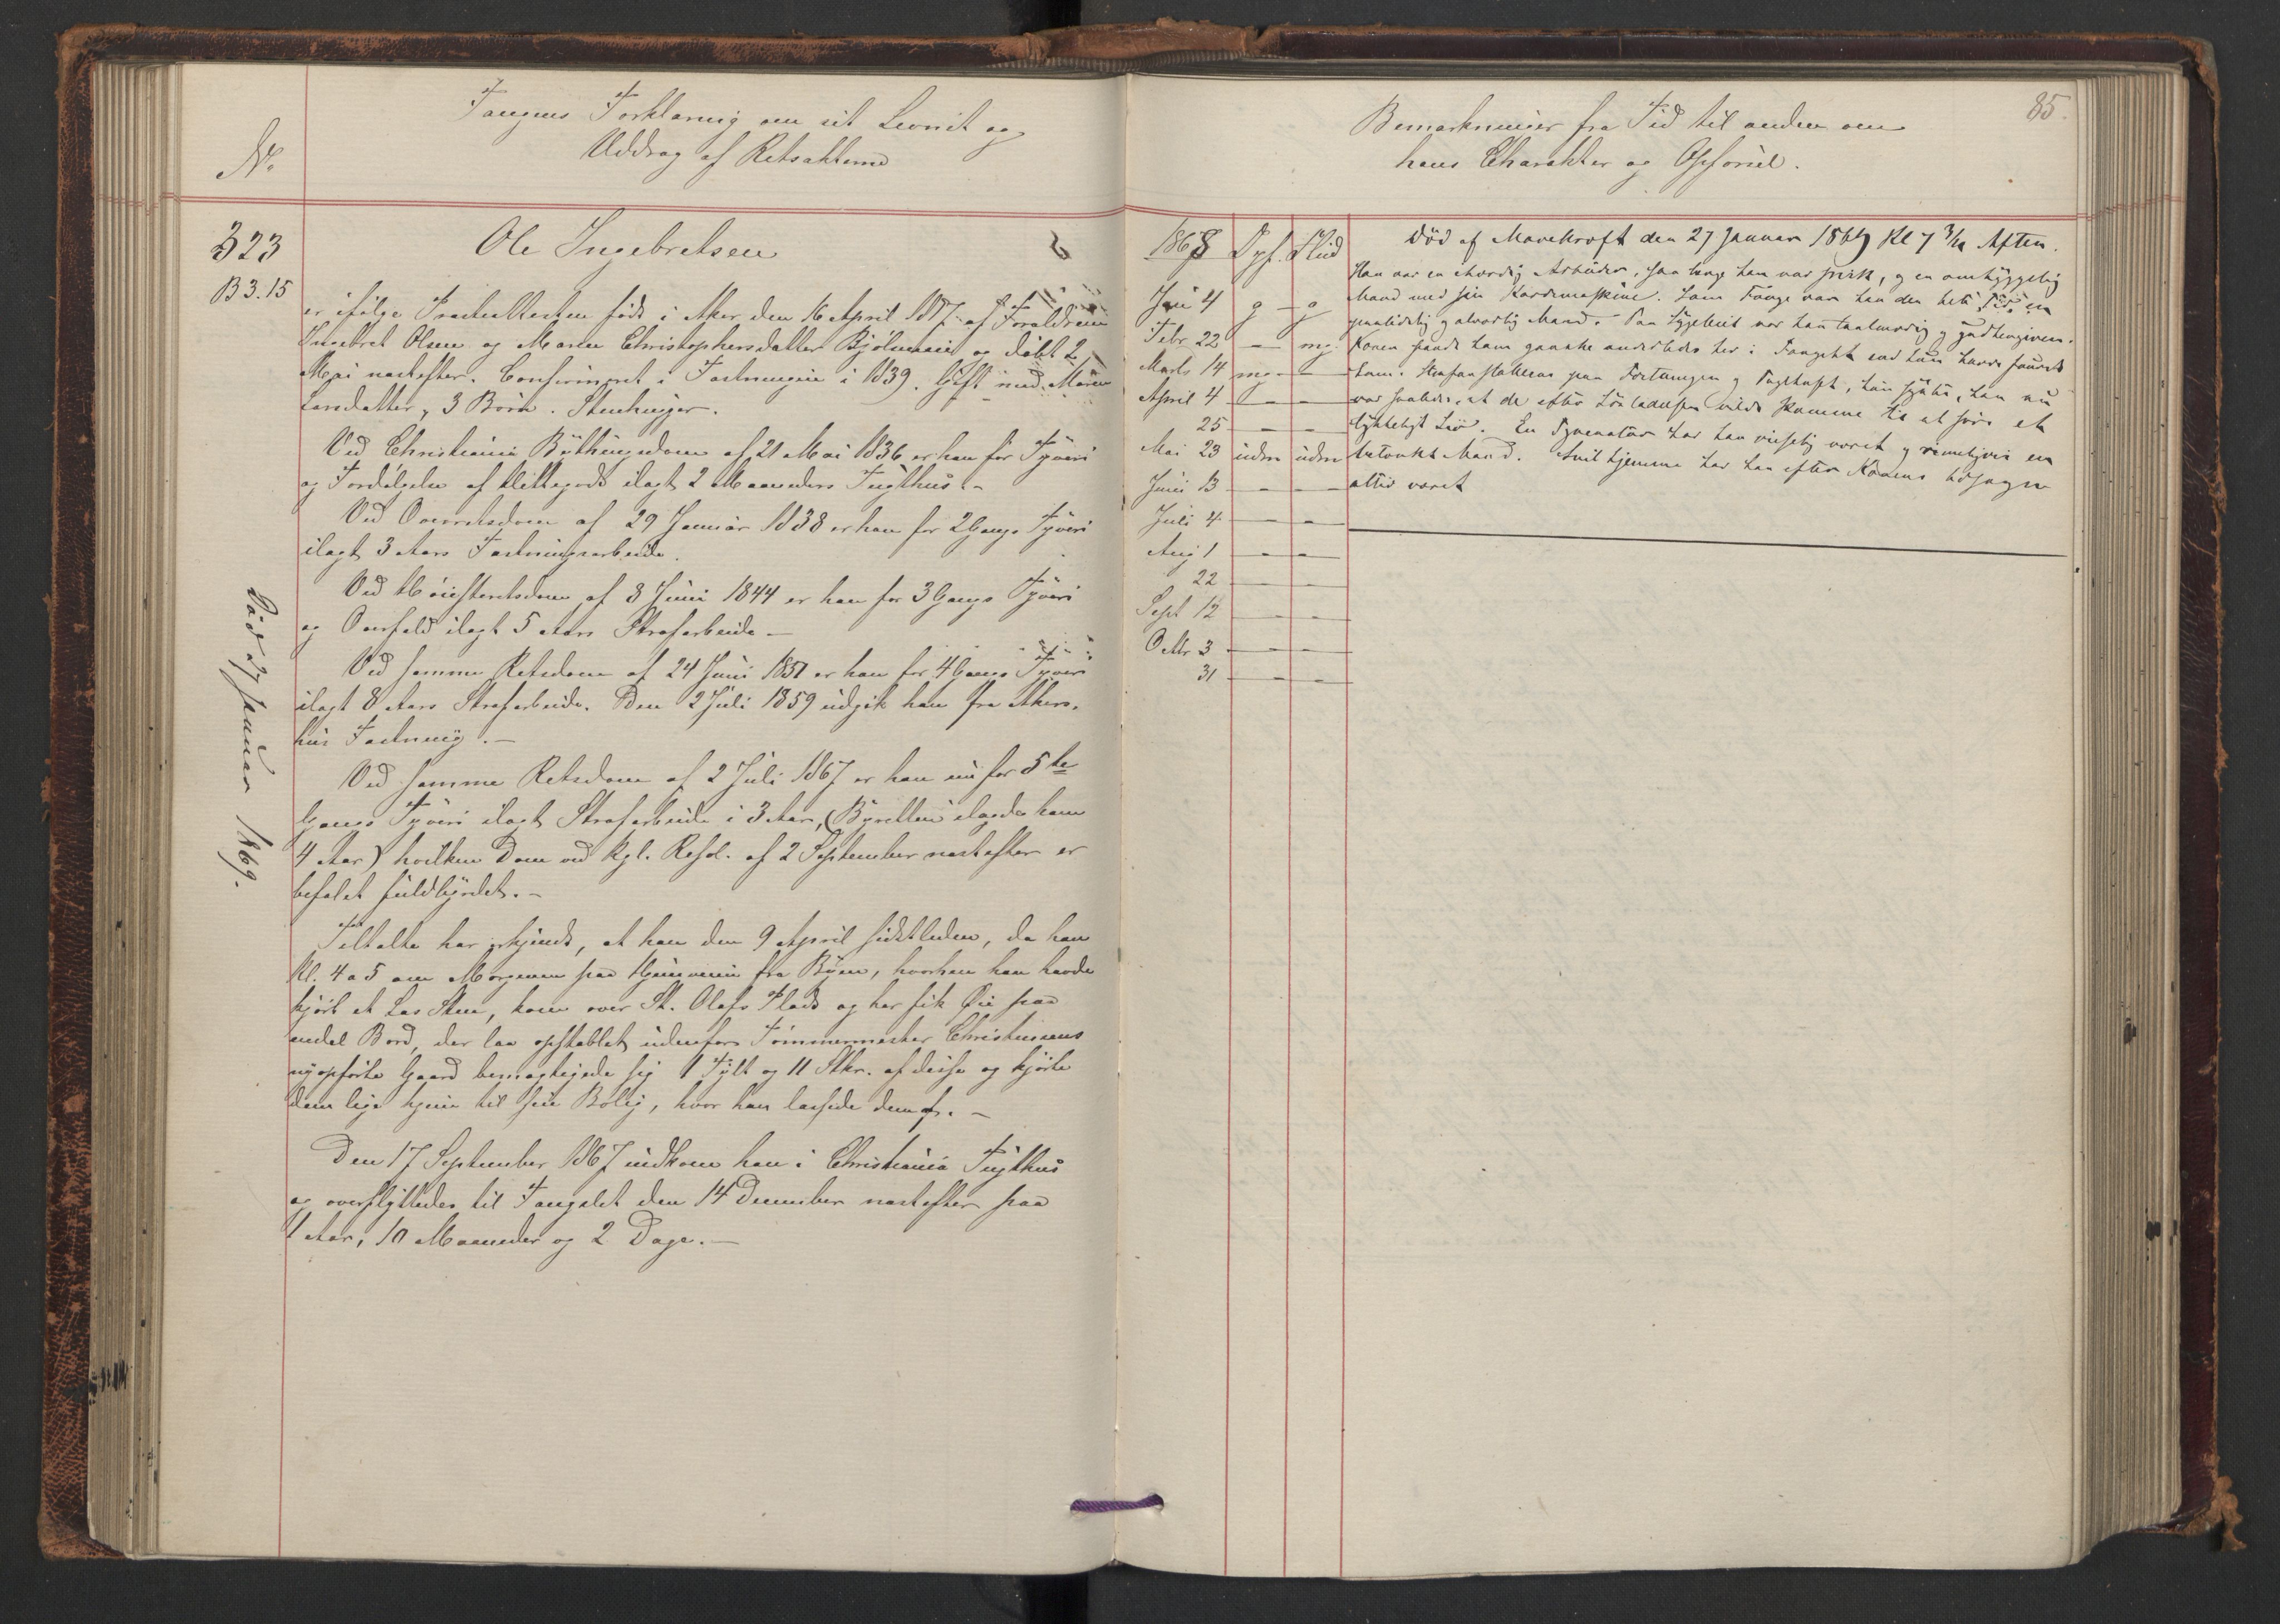 Fangens Forklaring om sit Levnet og
Uddrag af Retsakterne
No
323
B 3. 15
Ole Ingebretsen
6
er ifølge Præsteattesten født i Aker den 16 April 1817 af Forældrene
Ingebret Olsen og Maren Christophersdatter Bjølsenmii og døbt 2
Mai næstefter. Confirmeret i Fæstningen i 1839. Gift med Maren
Larsdatter, 3 Børn. Stenhugger.
Ved Christiania Bythingsdom af 21 Mai 1836 er han for Tyveri
og Fordølgelse af Hittegods ilagt 2 Maaneders Tugthus. -
Ved Overretsdom af 29 Januar 1838 er han for 2 Gangs Tyveri
ilagt 3 Aars Fæstningsarbeide.
Ved Høiesteretsdom af 8 Juni 1844 er han for 3 Gangs Tyveri
og Overfald ilagt 5 Aars Strafarbeide -
Ved samme Retsdom af 24 Juni 1851 er han for 4 Gangs Tyveri
ilagt 8 Aars Strafarbeide. Den 2 Juli 1859 udgik han fra Akers-
hus Fæstning. -
Ved samme Retsdom af 2 Juli 1867 er han nu for 5te
Gangs Tyveri ilagt Strafarbeide i 3 Aar, (Byretten ilagde ham
4 Aar) hvilken Dom ved kgl. Resol. af 2 September næstefter er
befalet fuldbyrdet. -
Tiltalte har erkjendt, at han den 9 April sidstleden, da han
Kl. 4 a 5 om Morgenen paa Hjemveien fra Byen, hvorhen han havde
kjørt et Læs Sten, kom over St. Olafs Plads og her fik Øie paa
endel Bord, der laa opstablet udenfor Tømmermester Christensens
nyopførte Gaard bemægtigede sig 1 Tylt og 11 Stkr. af disse og kjørte
dem lige hjem til sin Bolig, hvor han læssede dem af. -
Den 17 September 1867 indkom han i Christiania Tugthus
og overflyttedes til Fængslet den 14 December næstefter paa
1 Aar, 10 Maaneder og 2 Dage. -
Død 27 Januar 1869.
85.
Bemærkninger fra Tid til anden om
hans Charakter og Opførsel.
1868 Opf. Flid
Jan 4 g - g
Febr 22 - mg.
Marts 14 mg. -
April 4 - -
25 - -
Mai 23 udm udm
Juni 13 - -
Juli 4 - -
Aug 1 - -
22 - -
Sept 12 - -
Octbr 3 - -
31 - -
Død af Mavekræft den 27 Januar 1869 Kl 7 3/4 Aften.
Han var en ihærdig Arbeider, saa længe han var frisk, og en omhyggelig
Mand med sin Kardemaskine. Som Fange var han den hele Tid en
paalidelig og alvorlig Mand. Paa Sygeleiet var han taalmodig og gudhengiven.
Konen fandt ham ganske anderledes her i Fængslet end hun havde fundet
ham i Strafanstalterne paa Fæstningen og Tugthuset, hun syntes, han nu
var saaledes, at de efter Løsladelsen vilde komme til at føre et
lykkeligt Liv. En Tyvenatur har han vistnok været og rimeligvis en
betænkt Mand. Snil hjemme har han efter Konens Udsagn
altid været